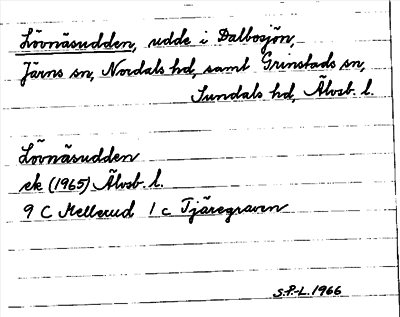 Lövnäsudden, udde i Dalbosjön,
Järns sn, Nordals hd, samt Grinstads sn,
Sundals hd, Älvsb. l.
Lövnäsudden
ek (1965) Älvsb. l.
9 C Mellerud 1 c Tjäregraven
S.P.-L. 1966